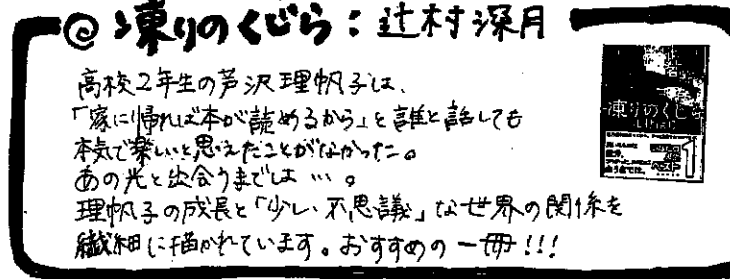 @ 凍りのくじら：辻村深月
高校2年生の芦沢理帆子は、
「家に帰れば本が読めるから」と誰と話しても
本気で楽しいと思えたことがなかった。
あの光と出会うまでは…。
理帆子の成長と「少し不思議」な世界の関係を
繊細に描かれています。おすすめの一冊!!!
凍りのくじら
1